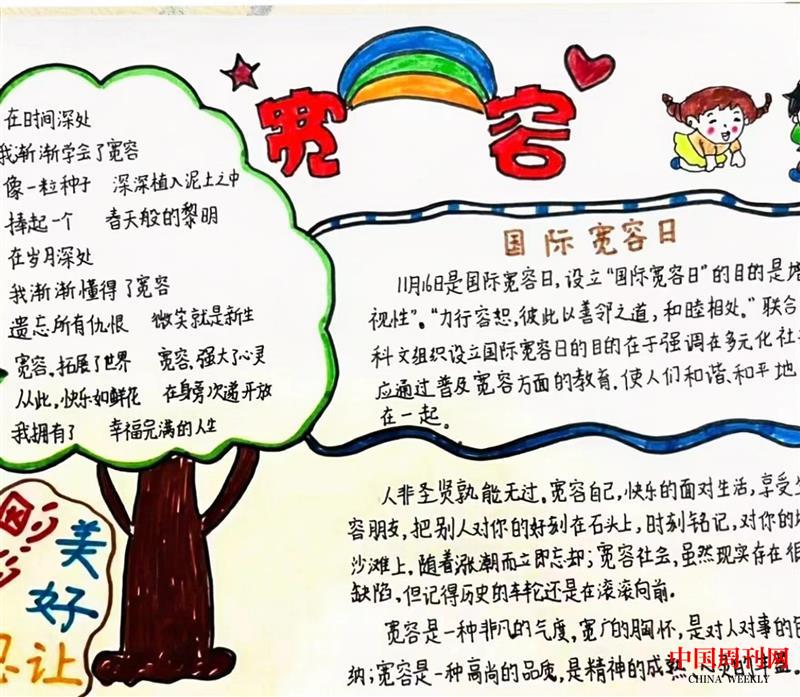 宽容
在时间深处
我渐渐学会了宽容
像一粒种子 深深植入泥土之中
捧起一个 春天般的黎明
在岁月深处
我渐渐懂得了宽容
遗忘所有仇恨 微笑就是新生
宽容,拓展了世界 宽容,强大了心灵
从此,快乐如鲜花 在身旁次递开放
我拥有了 幸福完满的人生
国际宽容日
11月16日是国际宽容日,设立“国际宽容日”的目的是
视性”。“力行容恕,彼此以善邻之道,和睦相处。”联合
科文组织设立国际宽容日的目的在于强调在多元化社
应通过普及宽容方面的教育.使人们和谐、和平地
在一起。
人非圣贤孰能无过。宽容自己,快乐的面对生活,享受
容朋友,把别人对你的好刻在石头上,时刻铭记,对你的
沙滩上,随着涨潮而立即忘却;宽容社会,虽然现实存在很
缺陷,但记得历史的车轮还是在滚滚向前。
宽容是一种非凡的气度,宽广的胸怀,是对人对事的
纳;宽容是一种高尚的品质,是精神的成熟
美好
忍让
中国周刊网
CHINA WEEKLY